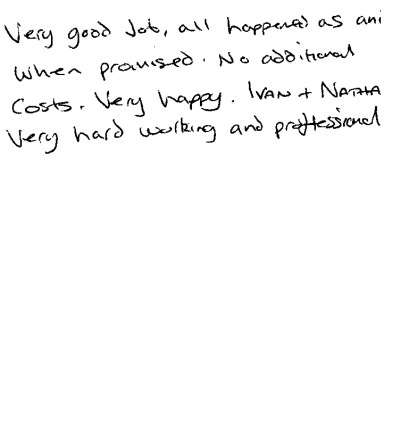 Very good Job, all happened as an
When promised. No additional
Costs. Very happy. IVAN + NATHA
Very hard working and proffessional